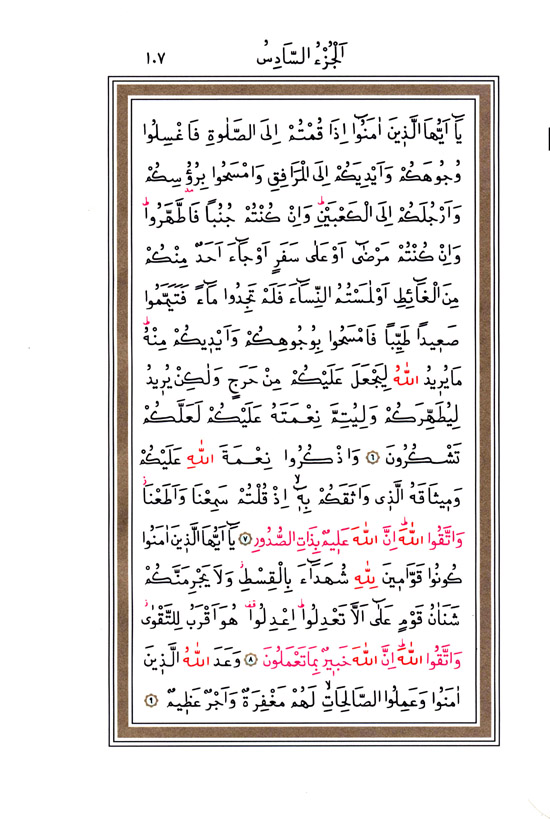 اَلْجُزْءُ السَّادِسُ ١٠٧
يَٓا اَيُّهَا الَّذ۪ينَ اٰمَنُٓوا اِذَا قُمْتُمْ اِلَى الصَّلٰوةِ فَاغْسِلُوا
وُجُوهَكُمْ وَاَيْدِيَكُمْ اِلَى الْمَرَافِقِ وَامْسَحُوا بِرُؤُ۫سِكُمْ
وَاَرْجُلَكُمْ اِلَى الْكَعْبَيْنِۜ وَاِنْ كُنْتُمْ جُنُباً فَاطَّهَّرُواۜ
وَاِنْ كُنْتُمْ مَرْضٰٓى اَوْ عَلٰى سَفَرٍ اَوْ جَٓاءَ اَحَدٌ مِنْكُمْ
مِنَ الْغَٓائِطِ اَوْ لٰمَسْتُمُ النِّسَٓاءَ فَلَمْ تَجِدُوا مَٓاءً فَتَيَمَّمُوا
صَع۪يداً طَيِّباً فَامْسَحُوا بِوُجُوهِكُمْ وَاَيْد۪يكُمْ مِنْهُۜ
مَا يُر۪يدُ اللّٰهُ لِيَجْعَلَ عَلَيْكُمْ مِنْ حَرَجٍ وَلٰكِنْ يُر۪يدُ
لِيُطَهِّرَكُمْ وَلِيُتِمَّ نِعْمَتَهُ عَلَيْكُمْ لَعَلَّكُمْ
تَشْكُرُونَ ﴿٦﴾ وَاذْكُرُوا نِعْمَةَ اللّٰهِ عَلَيْكُمْ
وَم۪يثَاقَهُ الَّذ۪ي وَاثَقَكُمْ بِه۪ٓۙ اِذْ قُلْتُمْ سَمِعْنَا وَاَطَعْنَاۘ
وَاتَّقُوا اللّٰهَۜ اِنَّ اللّٰهَ عَل۪يمٌ بِذَاتِ الصُّدُورِ ﴿٧﴾ يَٓا اَيُّهَا الَّذ۪ينَ اٰمَنُوا
كُونُوا قَوَّام۪ينَ لِلّٰهِ شُهَدَٓاءَ بِالْقِسْطِۘ وَلَا يَجْرِمَنَّكُمْ
شَنَاٰنُ قَوْمٍ عَلٰٓى اَلَّا تَعْدِلُواۜ اِعْدِلُوا۠ هُوَ اَقْرَبُ لِلتَّقْوٰىۘ
وَاتَّقُوا اللّٰهَۜ اِنَّ اللّٰهَ خَب۪يرٌ بِمَا تَعْمَلُونَ ﴿٨﴾ وَعَدَ اللّٰهُ الَّذ۪ينَ
اٰمَنُوا وَعَمِلُوا الصَّالِحَاتِۙ لَهُمْ مَغْفِرَةٌ وَاَجْرٌ عَظ۪يمٌ ﴿٩﴾